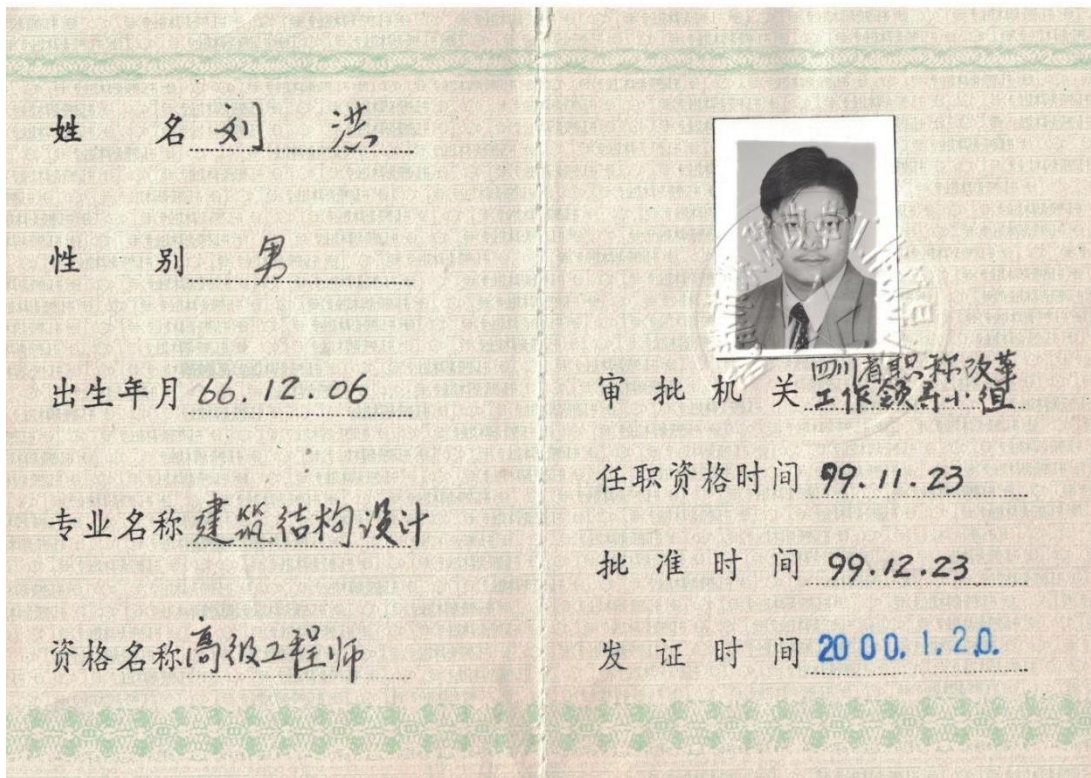 姓 名 刘 洪
性 别 男
出生年月 66.12.06
专业名称 建筑结构设计
资格名称 高级工程师
审批机关 四川省职称改革
工作领导小组
任职资格时间 99.11.23
批准时间 99.12.23
发证时间 2000.1.20.